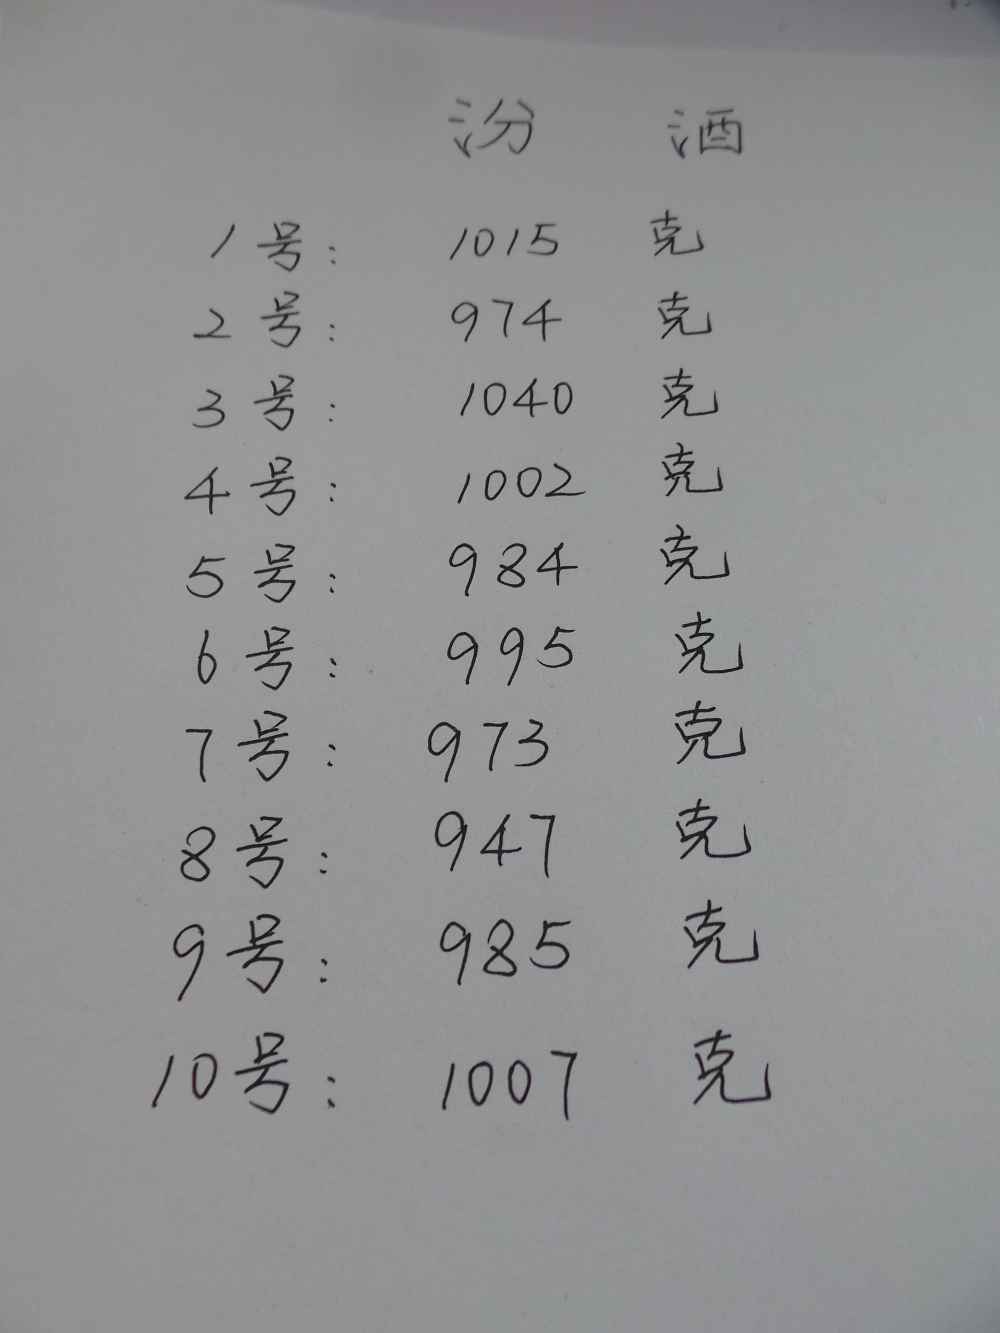 汾 酒
1号: 1015 克
2号: 974 克
3号: 1040 克
4号: 1002 克
5号: 984 克
6号: 995 克
7号: 973 克
8号: 947 克
9号: 985 克
10号: 1007 克